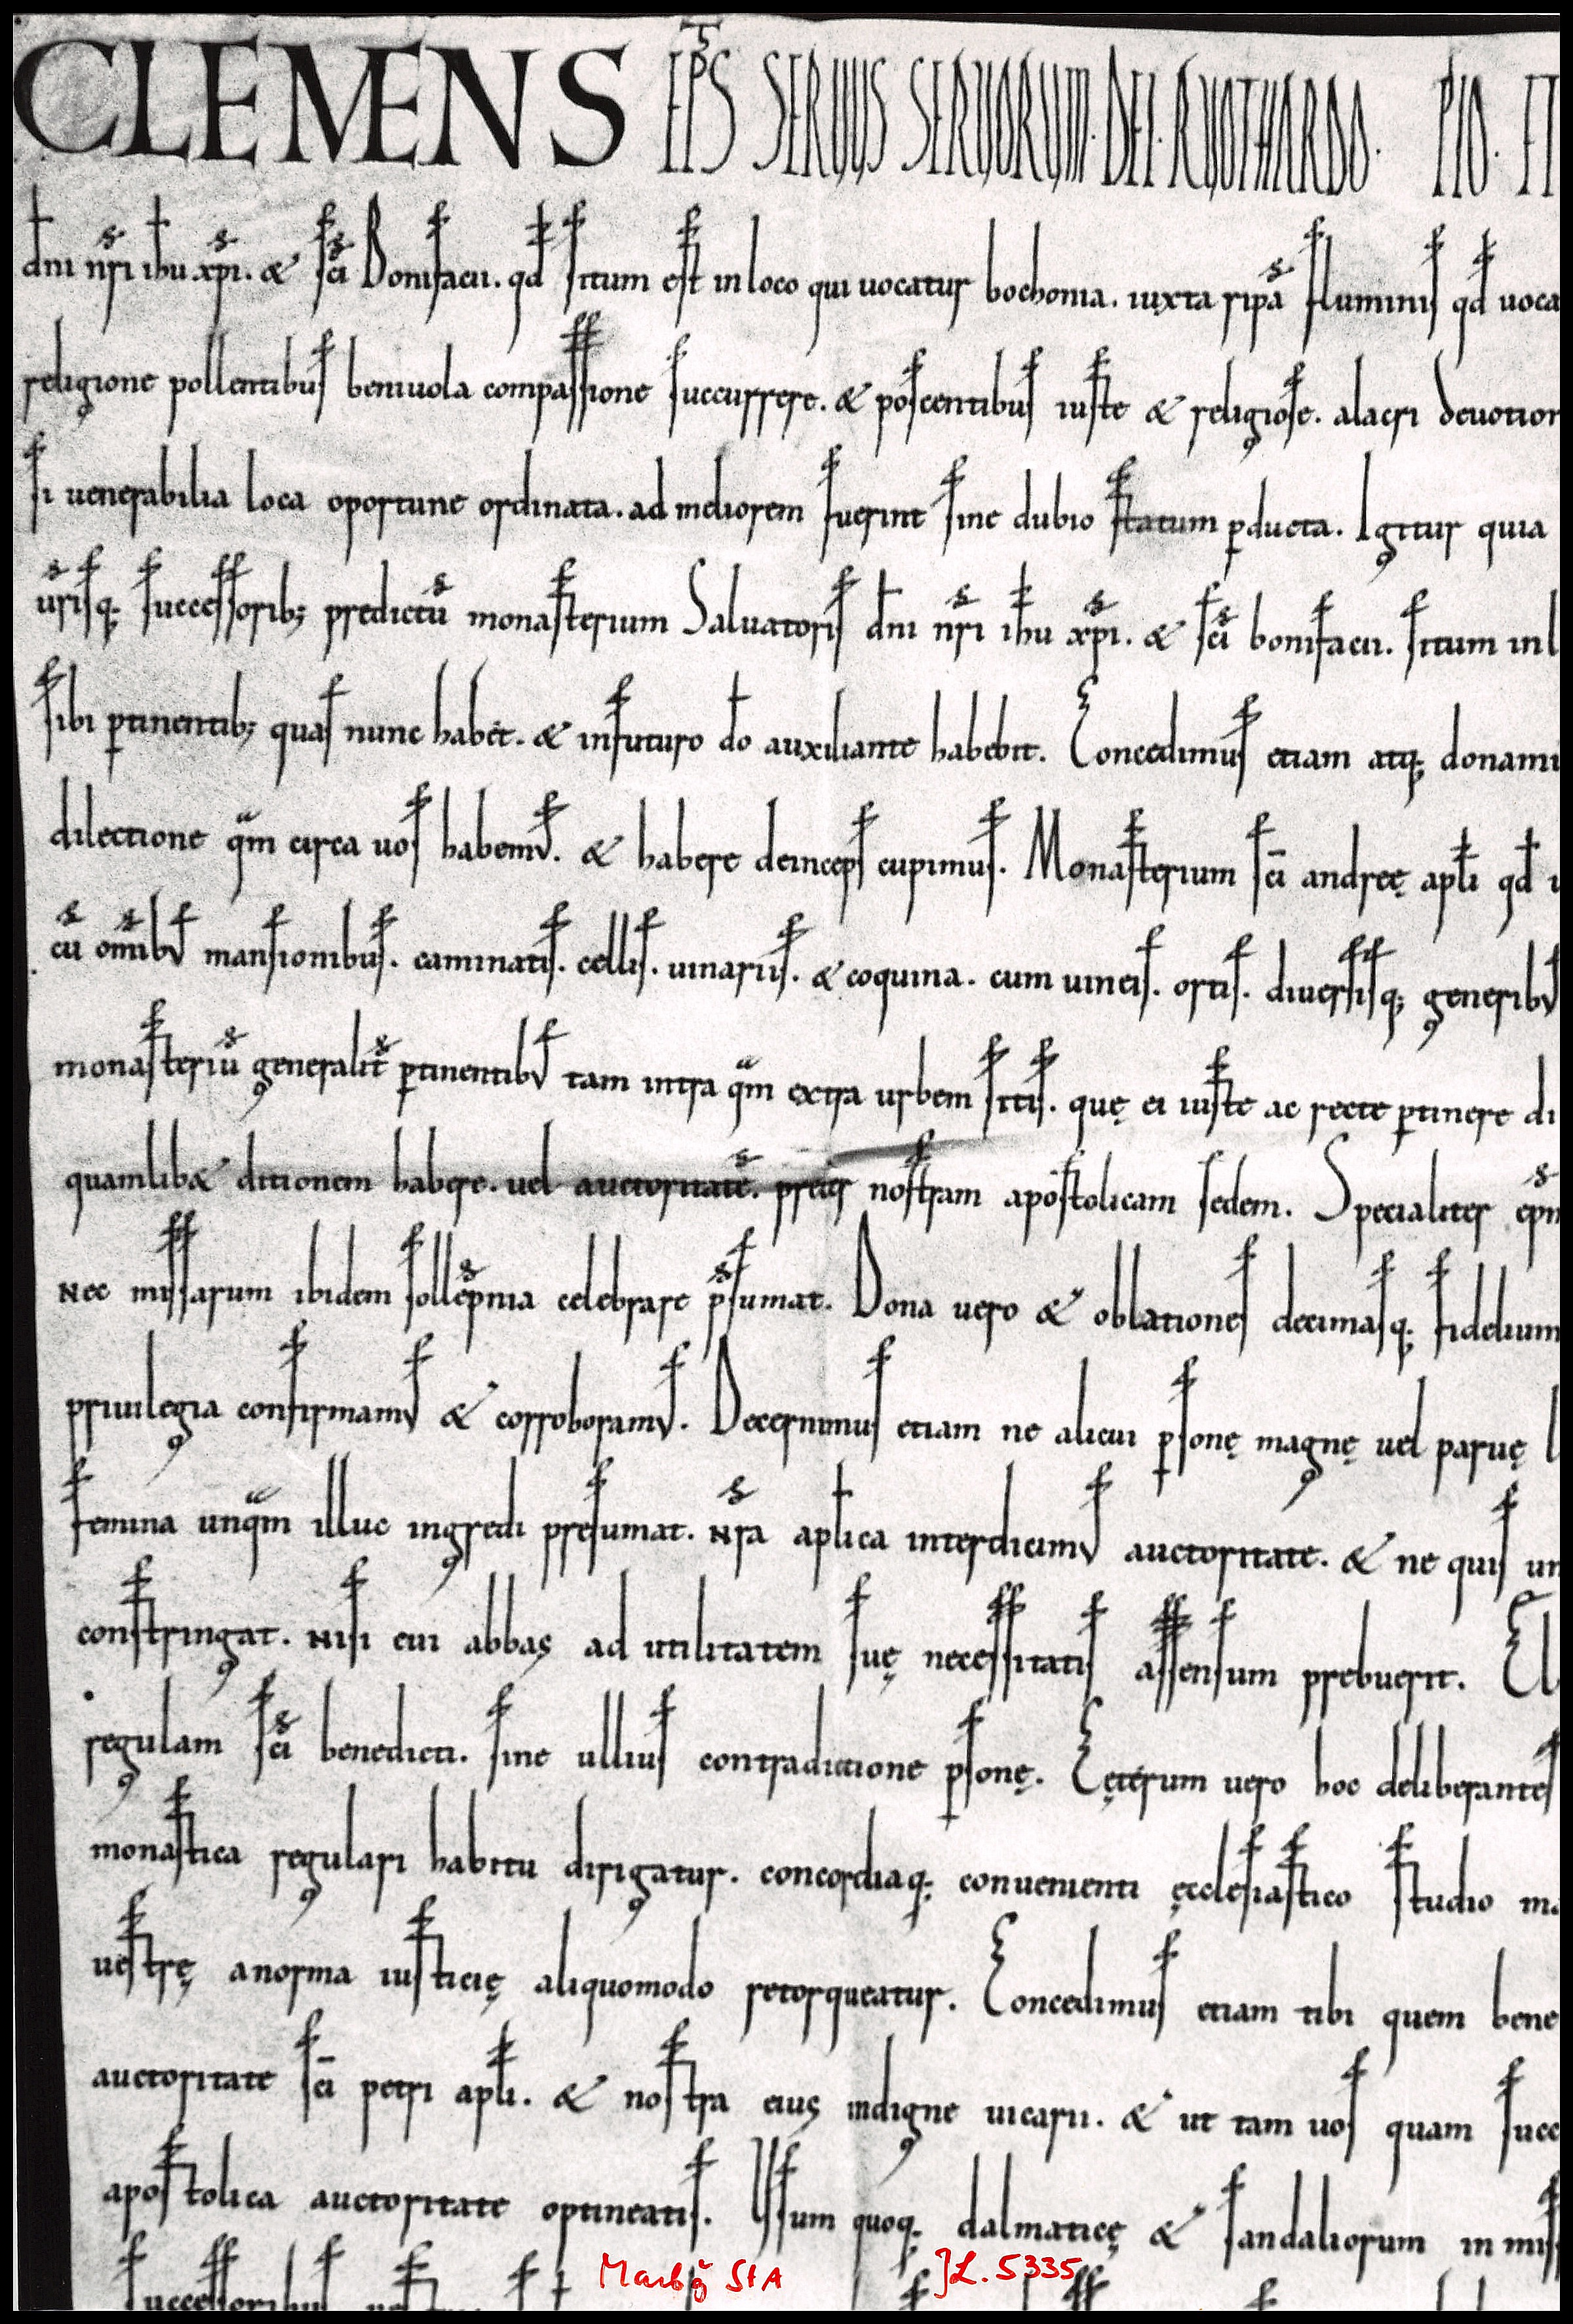 CLEMENS EPS SERUUS SERUORUM. DEI. RUOTHARDO. PIO. ET
dni nri ihu xpi. & sci Bonifacii. qd situm est in loco qui uocatur bochonia. iuxta ripā fluminis qd uoca
religione pollentibus beniuola compassione succurrere. & poscentibus iuste & religiose. alacri deuotion
si uenerabilia loca oportune ordinata. ad meliorem fuerint sine dubio statum pducta. Igitur quia
urisq; successorib; predictū monasterium Saluatoris dni nri ihu xpi. & sci bonifacii. situm in l
sibi ptinentib; quas nunc habet. & infuturo do auxiliante habebit. Concedimus etiam atq; donamu
dilectione qm circa uos habemus. & habere deinceps cupimus. Monasterium sci andreę apli qd
cū omibus mansionibus. caminatis. cellis. uinariis. & coquina. cum uineis. ortis. diuersisq; generibus
monasteriū generalit ptinentibus tam intra qm extra urbem sitis. quę ei iuste ac recte ptinere di
quamlib& ditionem habere. uel auctoritatē. preter nostram apostolicam sedem. Specialiter epm
Nec missarum ibidem sollēpnia celebrare psumat. Dona uero & oblationes decimasq; fidelium
priuilegia confirmamus & corroboramus. Decernimus etiam ne alicui psonę magnę uel paruę l
femina unqm illuc ingredi presumat. Nra aplica interdicimus auctoritate. & ne quis un
constringat. Nisi cui abbas ad utilitatem suę necessitatis assensum prebuerit. El
regulam sci benedicti. sine ullius contradictione psonę. Cęterum uero hoc deliberantes
monastica regulari habitu dirigatur. concordiaq; conuenienti ęcclesiastico studio ma
uestrę anorma iusticię aliquomodo retorqueatur. Concedimus etiam tibi quem bene
auctoritate sci petri apli. & nostra eius indigne uicarii. & ut tam uos quam succ
apostolica auctoritate optineatis. Usum quoq; dalmaticę & sandaliorum in miss
successoribus
Marbg StA JL. 5335